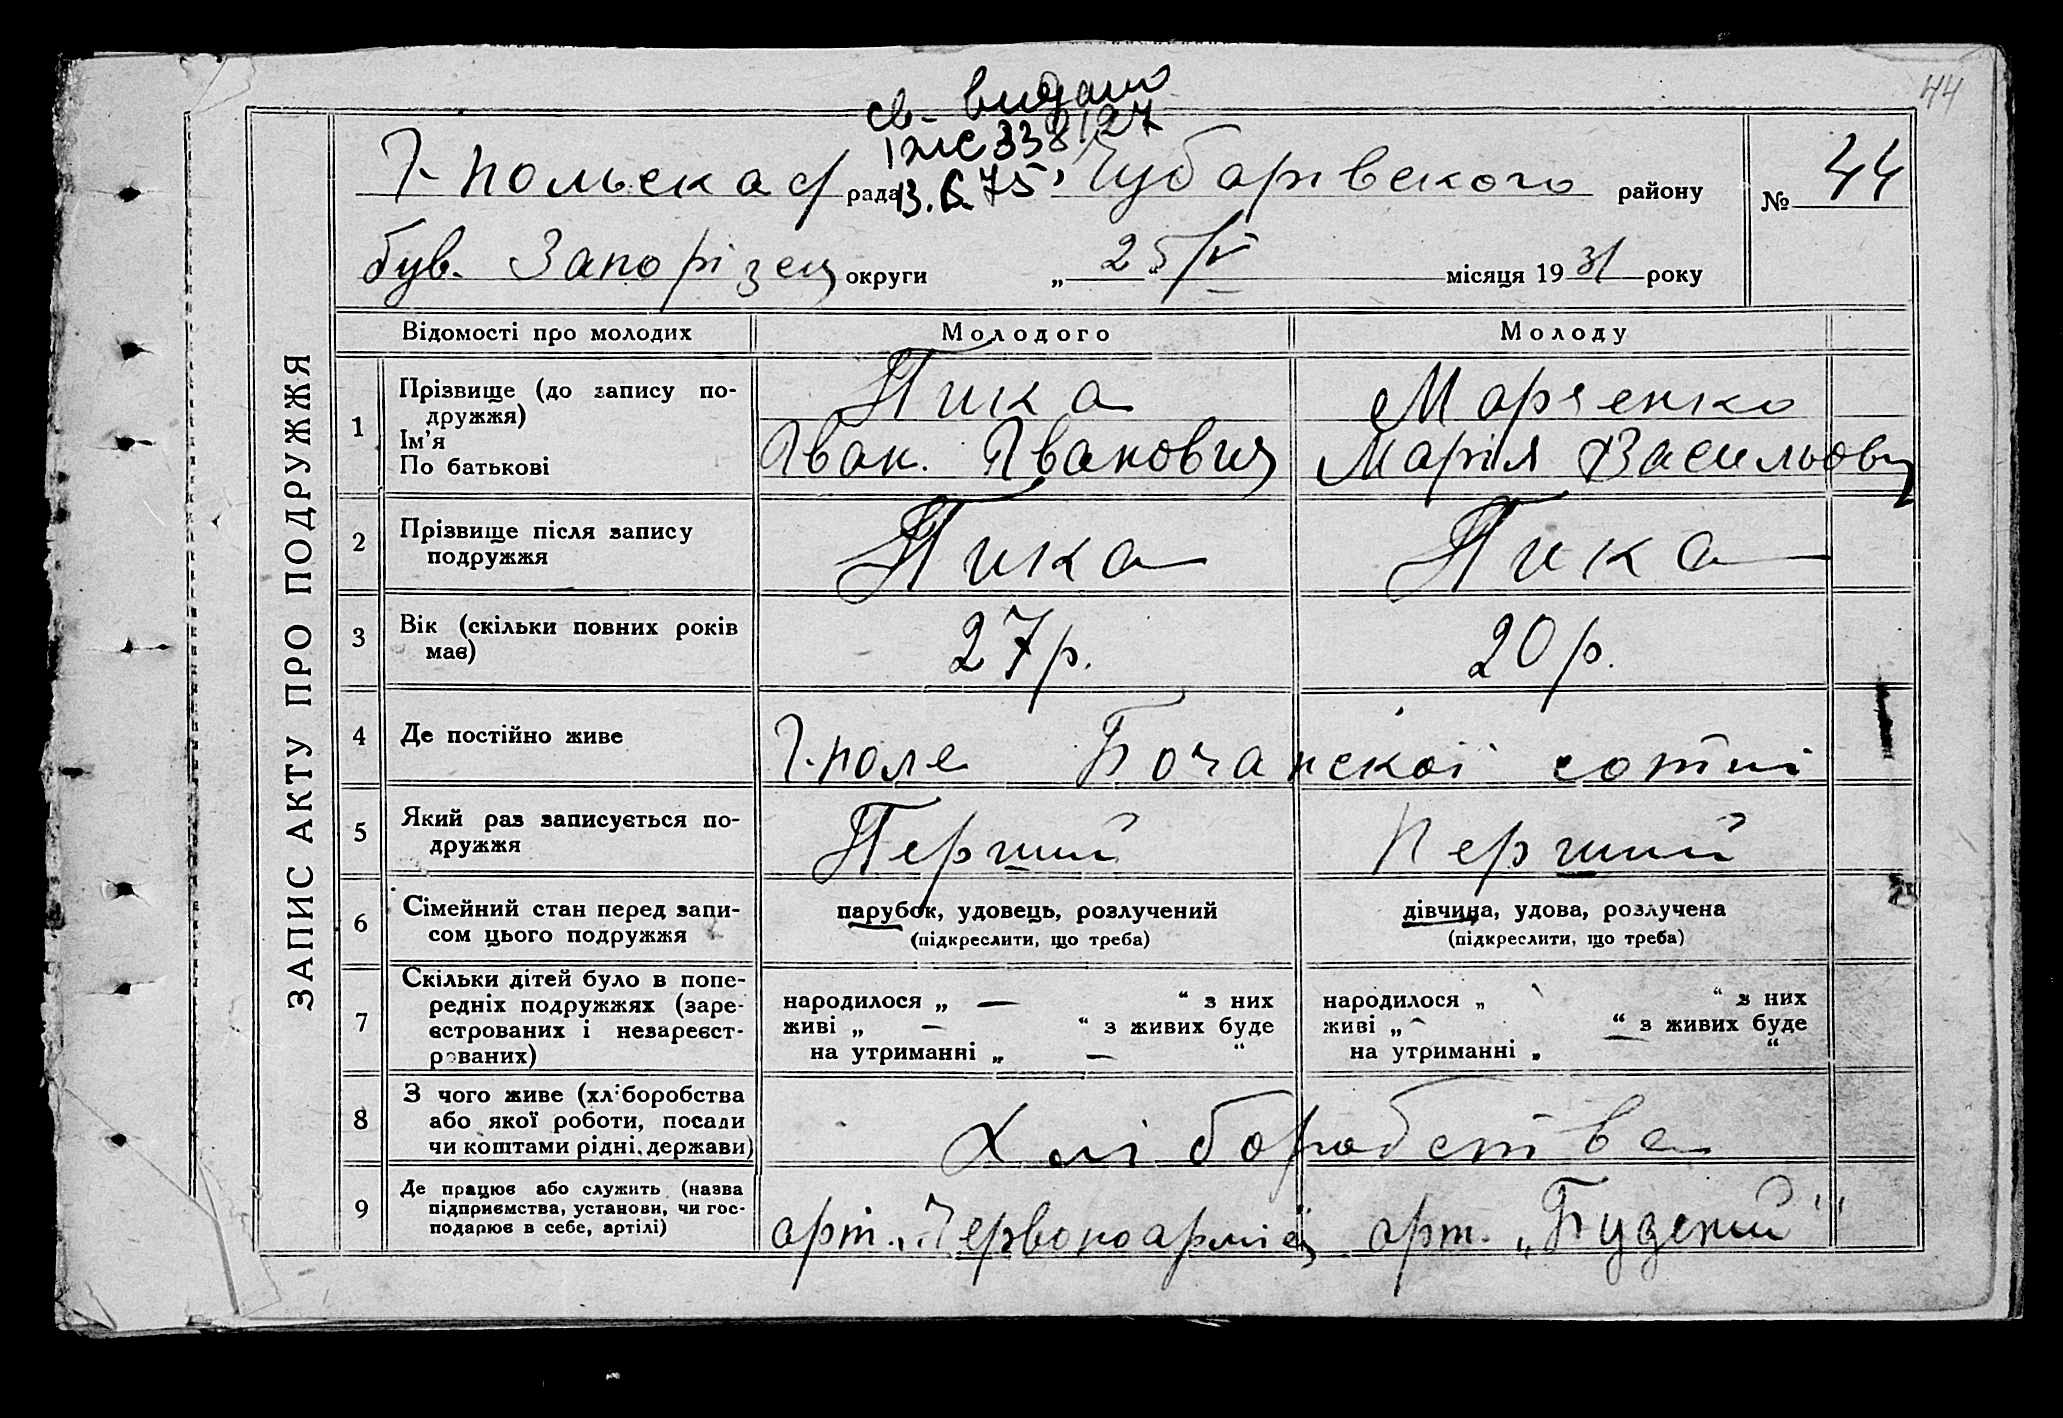 44
св. видано
ІЖС 338127
Г-польска с/рада 13.6.75 Чубарівского району № 44
був. Запорізец округи „ 25/V “ місяця 1931 року
ЗАПИС АКТУ ПРО ПОДРУЖЖЯ
Відомості про молодих Молодого Молоду
1 Прізвище (до запису подружжя) Пика Марченко
Ім'я
По батькові Іван. Іванович Марія Василъовн
2 Прізвище після запису
подружжя Пика Пика
3 Вік (скільки повних років
має) 27 р. 20 р.
4 Де постійно живе Г-поле Бочанскої сотні
5 Який раз записується по-
дружжя Перший Перший
6 Сімейний стан перед запи-
сом цього подружжя парубок, удовець, розлучений дівчина, удова, розлучена
(підкреслити, що треба) (підкреслити, що треба)
7 Скільки дітей було в попе-
редніх подружжях (заре-
єстрованих і незареєст-
рованих)
народилося „ — “ з них народилося „ “ з них
живі „ — “ з живих буде живі „ — “ з живих буде
на утриманні „ — “ на утриманні „ — “
8 З чого живе (хліборобства
або якої роботи, посади
чи коштами рідні, держави) Хліборобства
9 Де працює або служить (назва
підприємства, установи, чи гос-
подарює в себе, артілі) арт. „Червоноармієц арт. „Бузький"